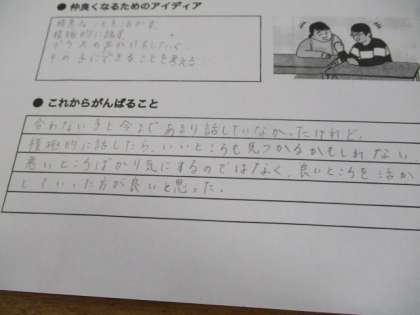 ● 仲良くなるためのアイディア
得意なことを活かす。
積極的に話す。
プラスの声かけをしていく
その子にできることを考える
● これからがんばること
合わない子と今まであまり話していなかったけれど、
積極的に話したら、いいところも見つかるかもしれない。
悪いところばかり気にするのではなく、良いところを活か
していった方が良いと思った。